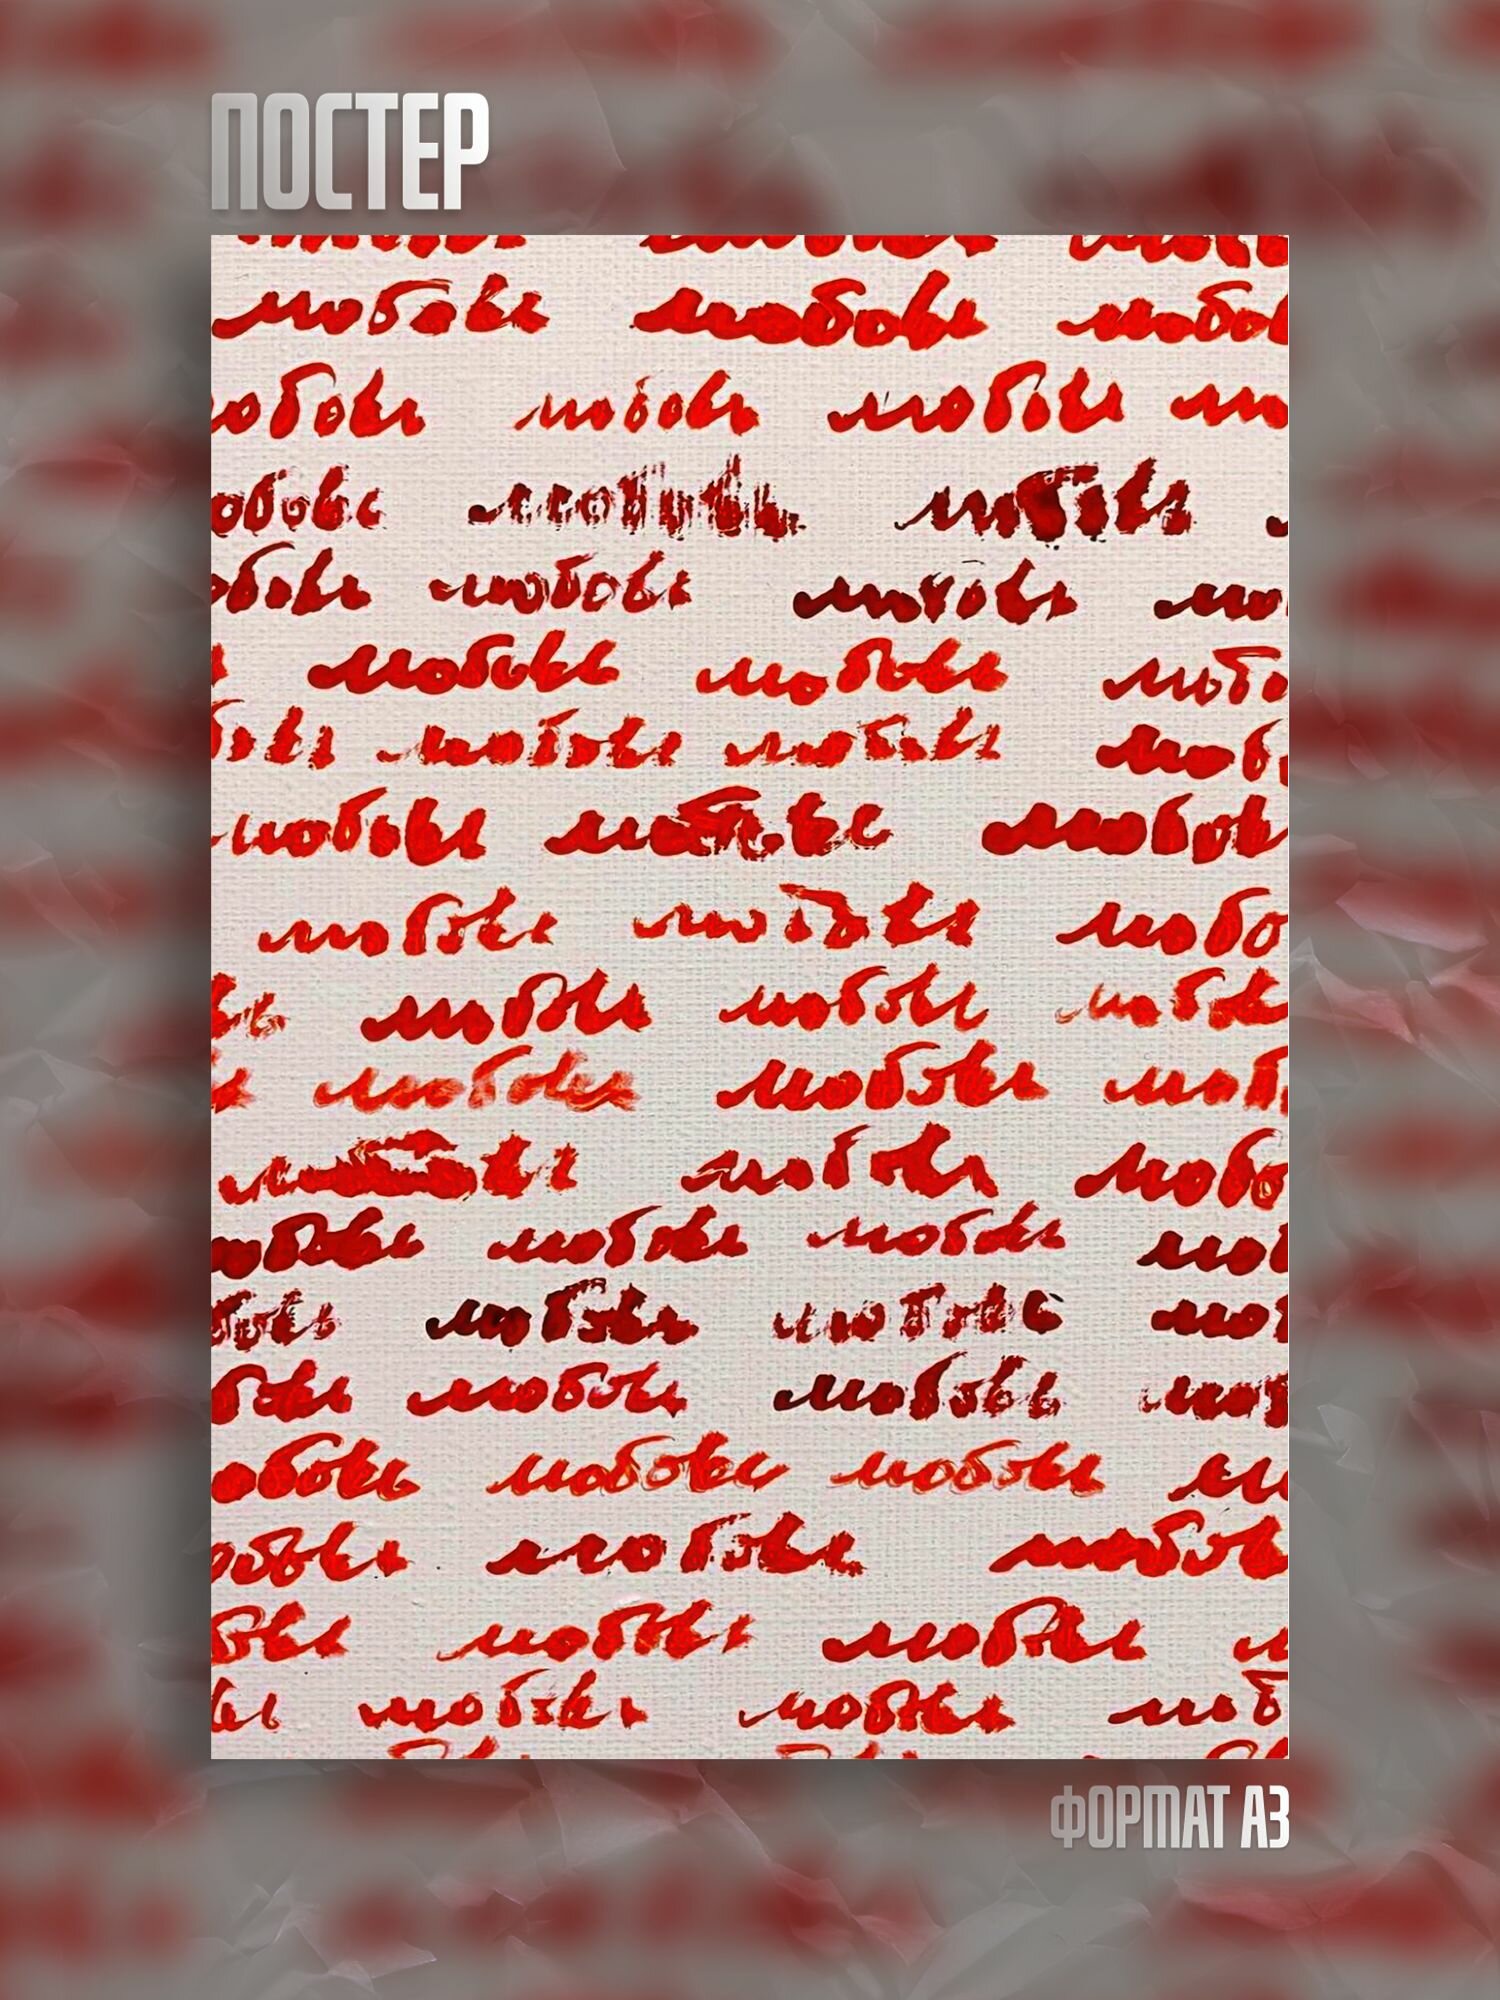 ПОСТЕР
любовь любовь любов
юбовь любовь любовь лю
обовь любовь любовь
бовь любовь любовь лю
любовь любовь любо
бовь любовь любовь любо
любовь любовь любов
любовь любовь любо
вь любовь любовь любов
ь любовь любовь люб
любовь любовь любо
юбовь любовь любовь люб
бовь любовь любовь люб
бовь любовь любовь люб
юбовь любовь любовь лю
юбовь любовь любов
бовь любовь любовь л
вь любовь любовь люб
ФОРМАТ А3